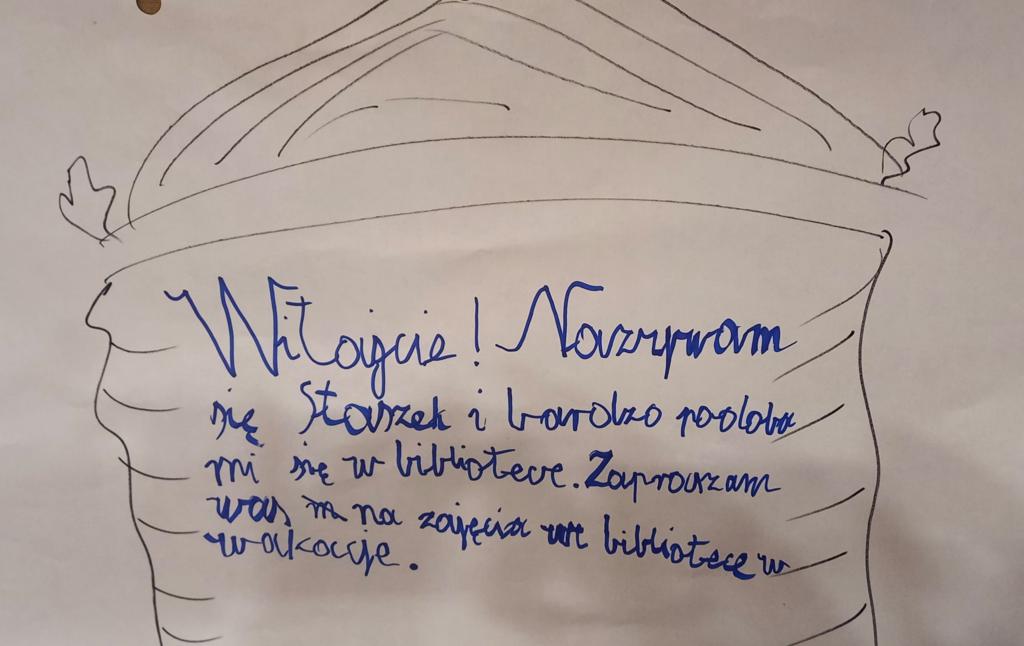 Witajcie! Nazywam
się Staszek i bardzo podoba
mi się w bibliotece. Zapraszam
was na zajęcia w bibliotece w
wakacje.